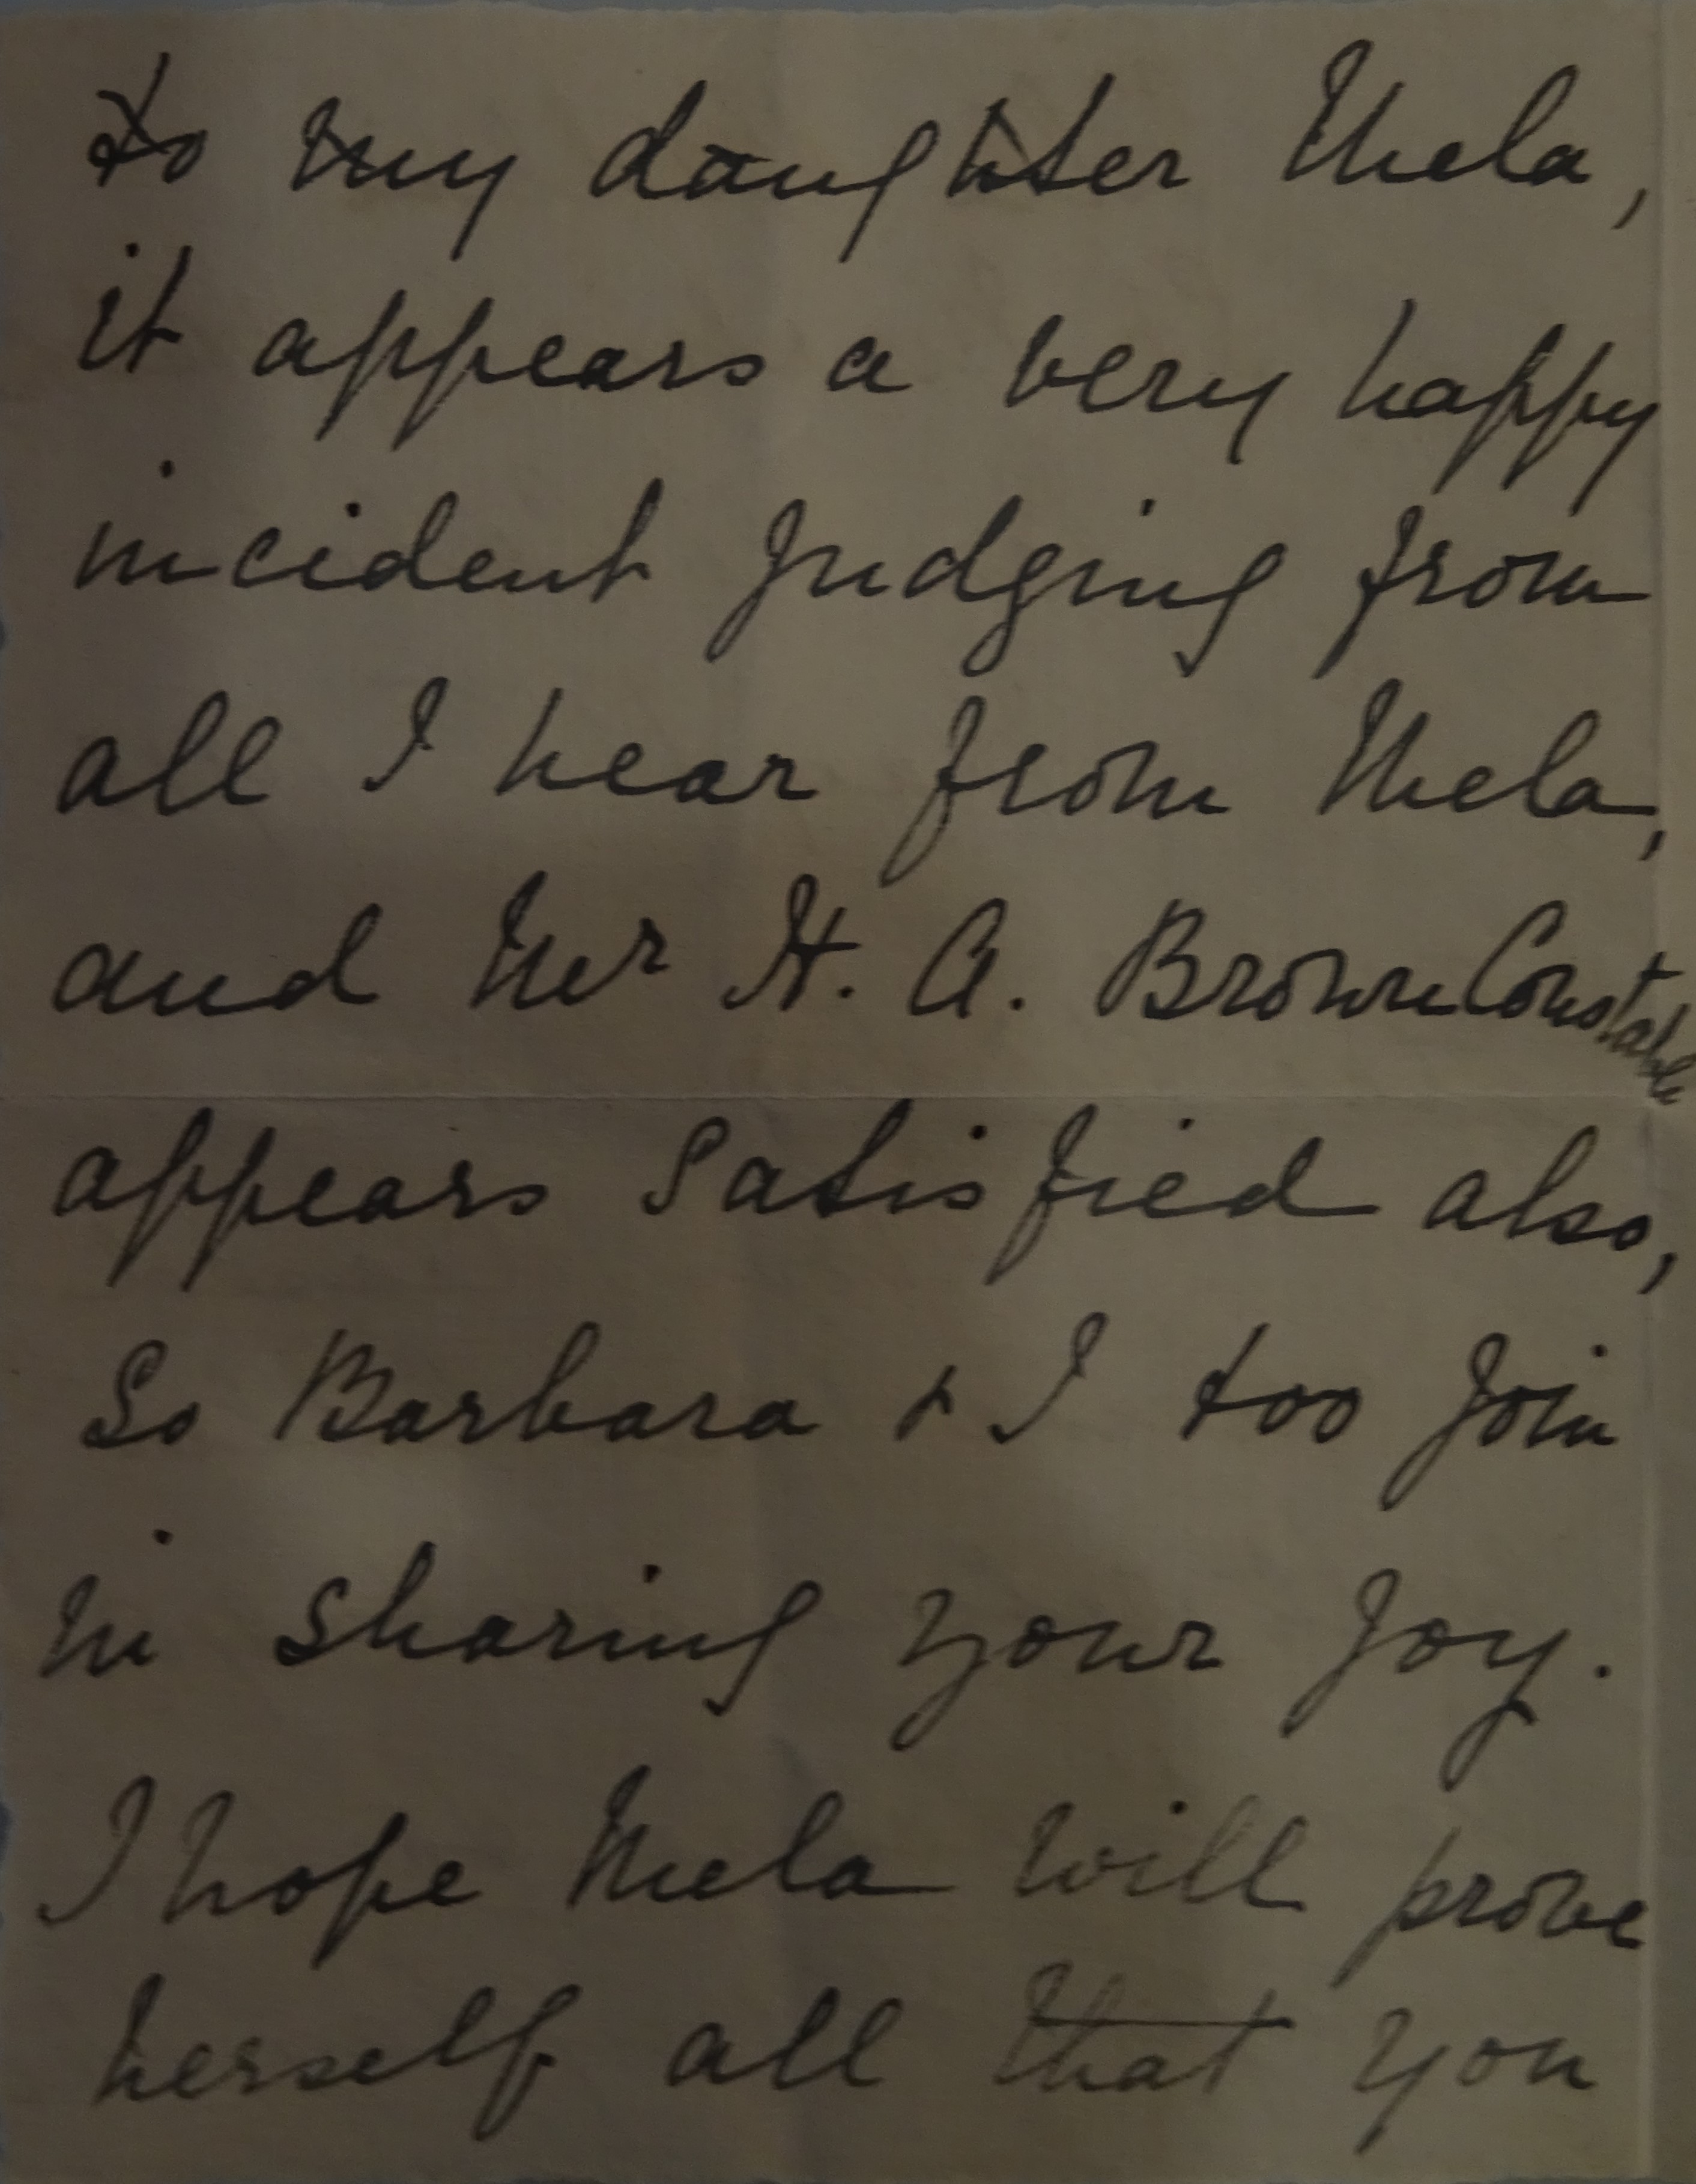 to my daughter Mela,
it appears a very happy
incident judging from
all I hear from Mela,
and Mr H. A. Brown Constable
appears satisfied also,
So Barbara & I too join
in sharing your joy.
I hope Mela will prove
herself all that you